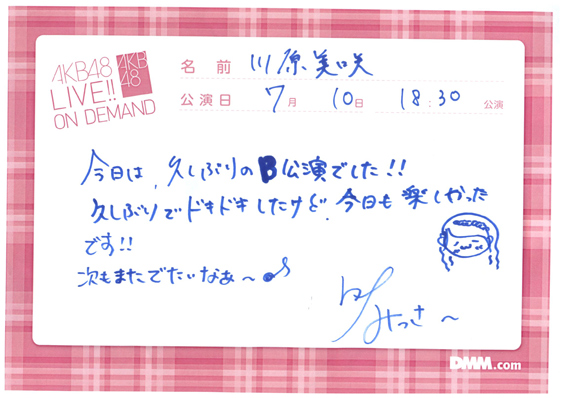 AKB48
LIVE!!
ON DEMAND
AKB
48
名前 川原美咲
公演日 7月 10日 18:30 公演
今日は、久しぶりのB公演でした!!
久しぶりでドキドキしたけど、今日も楽しかった
です!!
次もまたでたいなぁ〜♪
みっさ〜
DMM.com